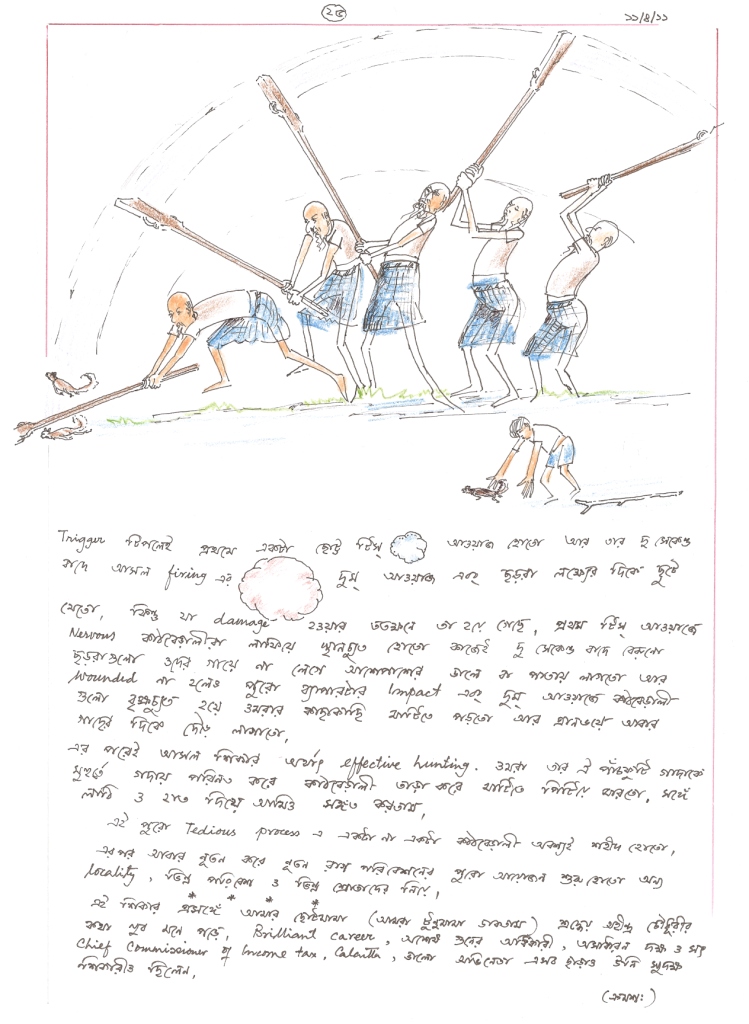 ২৫
১১/৪/১১
Trigger টিপলেই প্রথমে একটা ছোট্ট টিস্ আওয়াজ হোতো আর তার দু সেকেন্ড
বাদে আসল firing এর দুম্ আওয়াজ এবং ছড়রা লক্ষ্যের দিকে ছুটে
যেতো, কিন্তু যা damage হওয়ার ততক্ষনে তা হয়ে গেছে, প্রথম টিস্ আওয়াজে
Nervous কাঠবেড়ালীরা লাফিয়ে স্থানচ্যুত হোতো কাজেই দু সেকেন্ড বাদে বেরুনো
ছড়রাগুলো ওদের গায়ে না লেগে আশেপাশের ডালে বা পাতায় লাগতো আর
Wounded না হলেও পুরো ব্যাপারটার Impact এবং দুম্ আওয়াজে কাঠবেড়ালী
গুলো বৃক্ষচ্যুত হয়ে ওমরার কাছাকাছি মাটিতে পড়তো আর প্রানভয়ে আবার
গাছের দিকে দৌড় লাগাতো,
এর পরেই আসল শিকার অর্থাৎ effective hunting. ওমরা তার ঐ পাঁচফুটি গাদাকে
মুহূর্তে গদায় পরিনত করে কাঠবেড়ালী তাড়া করে মাটিতে পিটিয়ে মারতো, সঙ্গে
লাঠি ও হাত দিয়ে আমিও সঙ্গত করতাম,
এই পুরো Tedious process এ একটা না একটা কাঠবেড়ালী অবশ্যই শহীদ হোতো,
এরপর আবার নূতন করে নূতন রাগ পরিবেশনের পুরো আয়োজন শুরু হোতো অন্য
locality, ভিন্ন পরিবেশ ও ভিন্ন শ্রোতাদের নিয়ে,
* * *
এই শিকার প্রসঙ্গে আমার ছোটমামা (আমরা টুনুমামা ডাকতাম) শ্রদ্ধেয় চৌধুরীর
কথা খুব মনে পড়ে, Brilliant career, অশেষ গুনের অধিকারী, অসাধারন দক্ষ ও সৎ
Chief Commissioner of Income tax, Calcutta, ভালো অভিনেতা এসব ছাড়াও উনি সুদক্ষ
শিকারীও ছিলেন,
(ক্রমশঃ)